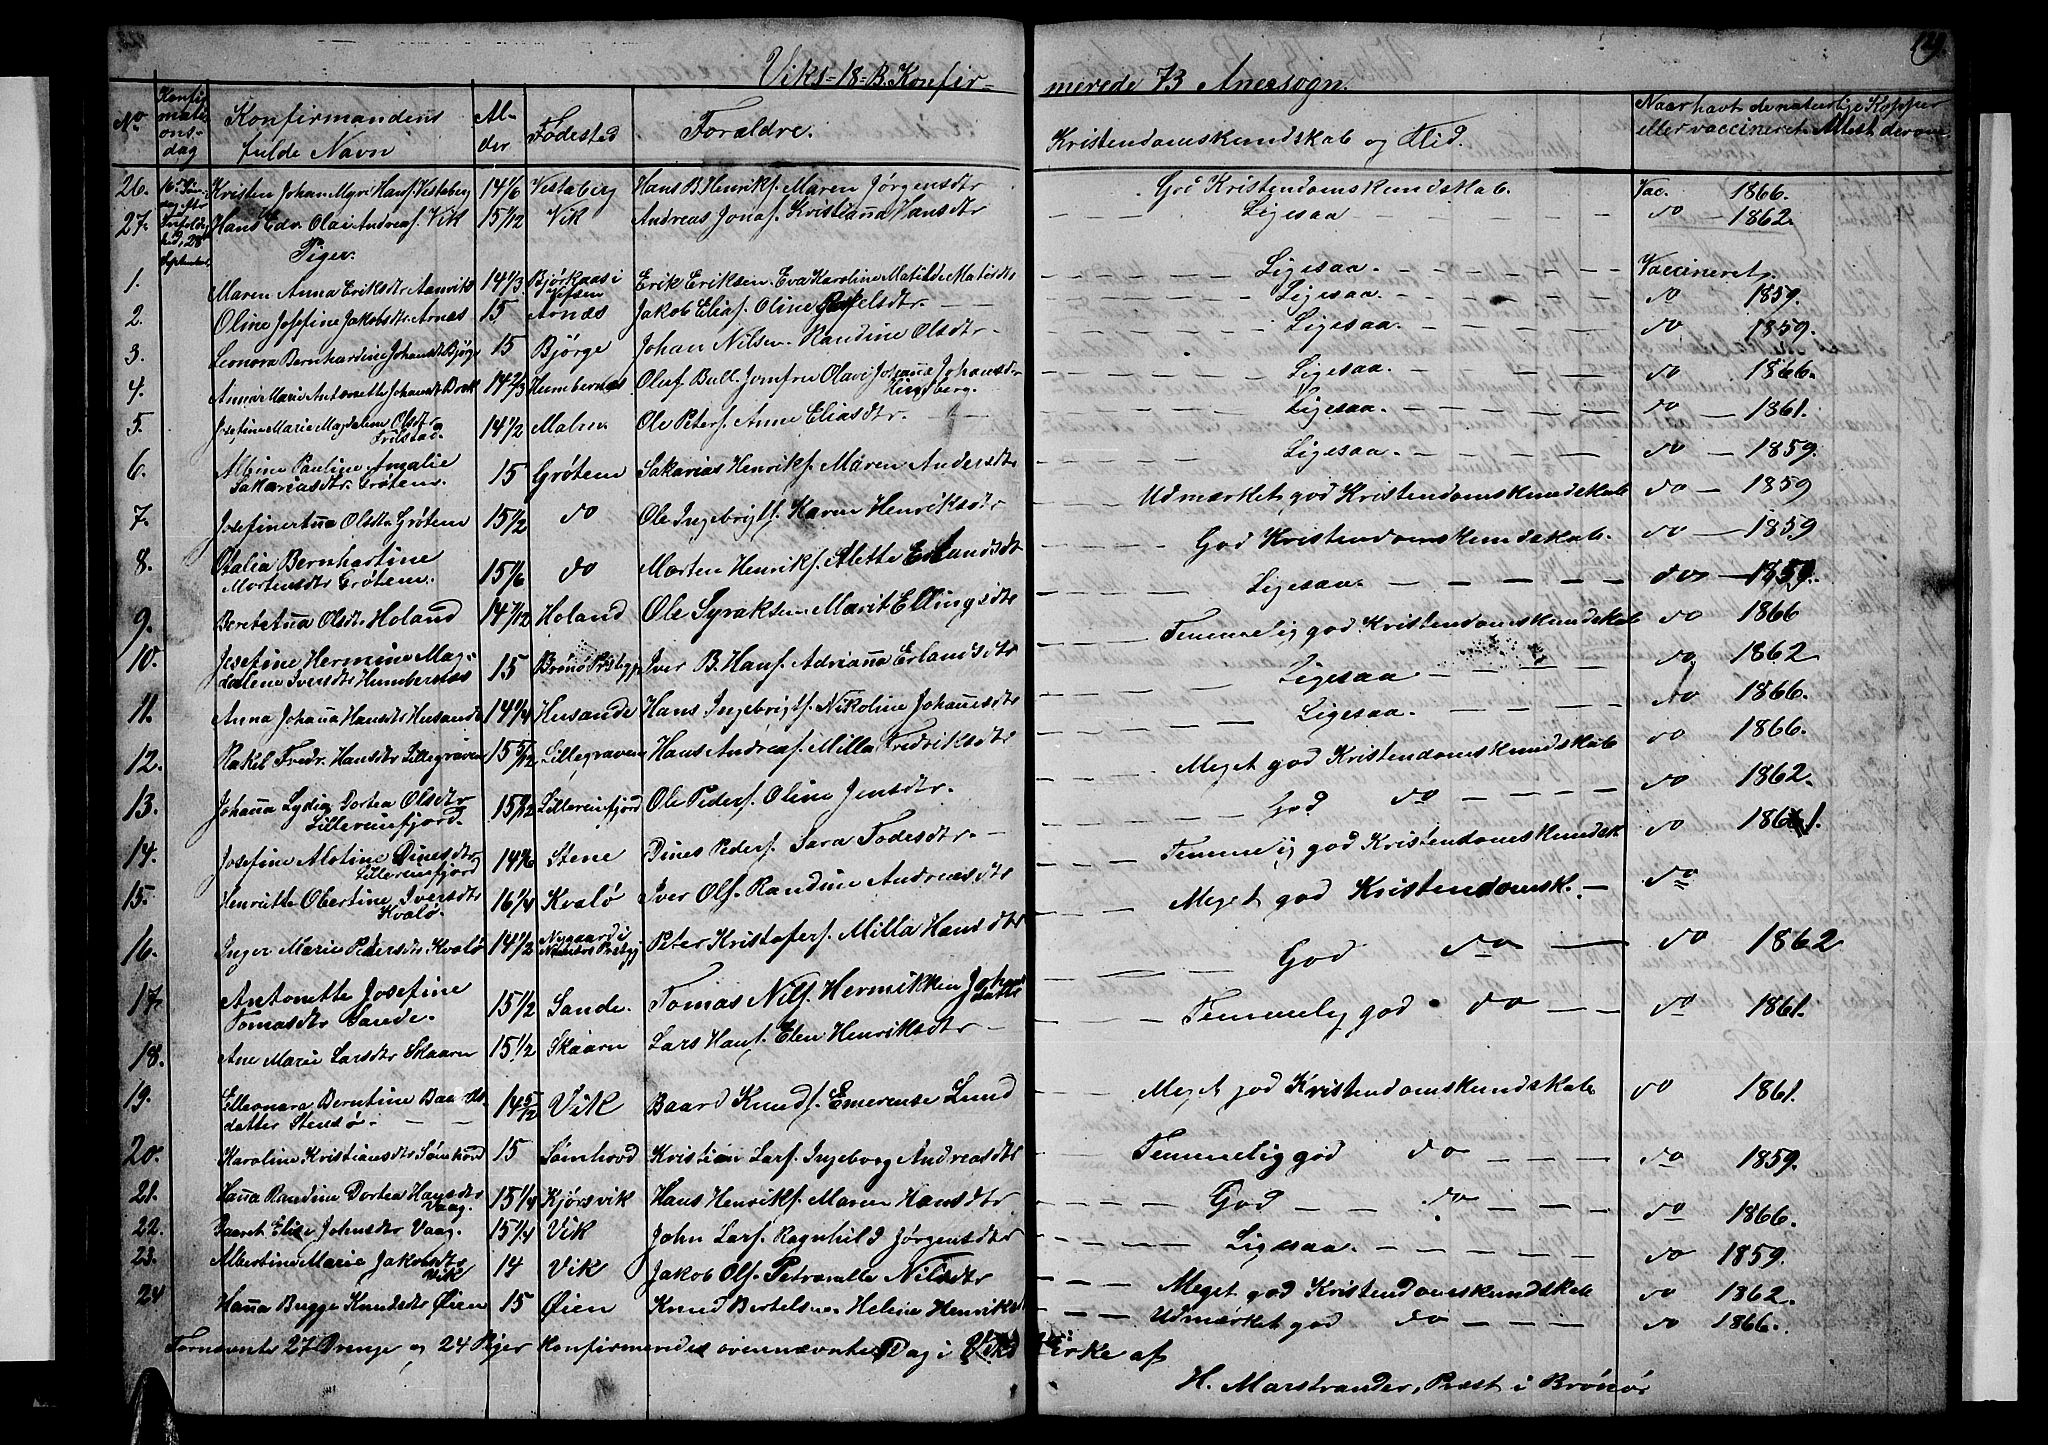 129.
Viks-18-B. Konfir- merede 73 Anexsogn.
No Konfirmationsdag Konfirmandens fulde Navn Alder Fødested Forældre. Kristendomskundskab og Flid. Naar havt de naturlige Kopper eller vaccineret. Attest derom
26. Kristen Johan Myre Hansf. Vestaberg 14 1/6 Vestaberg Hans B. Henrikf. Maren Jørgensdtr God Kristendomskundskab. Vac. 1866.
27. Hans Edv. Olai Andreasf. Vik 15 1/12 Vik Andreas Jonaf. Kristianna Hansdtr Ligesaa do 1862.
Piger.
1. Maren Anna Eriksdtr Aarvik 14 1/3 Bjørkaas i Vefsen Erik Eriksen. Eva Karoline Matilde Matisdtr Ligesaa. Vaccineret.
2. Oline Josefine Jakobsdtr Arnæs 15 Arnæs Jakob Eliaf. Oline Ligesaa. do 1859.
3. Leonora Bernhardine Johansdtr Bjørge 15 Bjørge Johan Nilsen. Randine Olsdtr Ligesaa. do 1859.
4. Anne Marie Antonette Johansdtr 14 2/3 Humbernæs Oluf Bull. Jomfru Olave Johanna Johansdtr Lindberg. Ligesaa. do 1866.
5. Josefine Marie Magdalena Olsdtr 14 1/2 Malm. Ole Petersf. Anne Eliasdtr. Ligesaa. do 1861.
6. Albine Pauline Amalie Sakariasdtr. Grøtem. 15 Grøtem Sakarias Henrikf. Maren Andersdtr Ligesaa. do 1859.
7. Josefine Anna Olsdtr Grøtem 15 1/2 do Ole Ingebrigtf. Karen Henriksdtr Udmærket god Kristendomskundskab do 1859
8. Otalia Bernhartine Mortensdtr Grøtem. 15 1/6 do Morten Henrikf. Alette Erlandsdtr God Kristendomskundskab. do 1859
9. Beret Anna Olsdtr Holand 14 7/12 Holand Ole Syraksen. Marit Ellingsdtr Ligesaa. do 1859.
10. Josefine Hermine Magdalene Iversdtr Humbernæs 15 Brønø Prstgj. Iver B. Hansf. Adrianna Erlandsdtr Temmelig god Kristendomskundskab do 1866
11. Anna Johanna Hansdtr Husande 14 1/4 Husande Hans Ingebrigtf. Nikoline Johannesdtr Ligesaa do 1862
12. Rakel Fredr. Hansdtr Lillegraven 15 5/12 Lillegraven Hans Andreaf. Milla Fredriksdtr Ligesaa. do 1866.
13. Johanna Lydia Dortea Olsdtr Lillereinfjord. Lillereinfjord Ole Pedersf. Oline Jensdtr. Meget god Kristendomskundskab do 1866.
14. Josefine Alotine Dinesdtr Lillereinfjord Stene Dines Pedersf. Sara Fodesdtr. God do do 1862.
15. Henriette Obertine Iversdtr Kvalø. 16 1/4 Kvalø Iver Olf. Randine Andreasdtr Temmelig god Kristendomsk. do 1861.
16. Inger Marie Pedersdtr Kvalø 14 1/2 Nygaard i Prstgj Peter Kristoferf. Milla Hansdtr Meget god Kristendomsk. do
17. Antonette Josefine Tomasdtr Sande. 15 1/2 Sande. Tomas Nilf. Hermikken God do do 1862
18. Ane Marie Larsdtr Skaarn 15 1/2 Skaarn Lars Hansf. Elen Henriksdtr Temmelig god do do 1861.
19. Elleonara Berntine Baardsdatter Stensø. 14 5/12 Vik Baard Knudf. Emerense Lund Meget god Kristendomskundskab do 1861.
20. Karoline Kristiansdtr Sømhovd 15 Sømhovd Kristian Larsf. Ingeborg Andreasdtr Temmelig god do do 1859.
21. Hanna Randine Dortea Hansdtr Vaag. 15 1/4 Kjørsvik Hans Henrikf. Maren Hansdtr God do do 1866.
22. Jaaret Elise Johnsdtr Vaag. 15 1/4 Vik John Larsf. Ragnhild Jørgensdtr Ligesaa. do 1859.
23. Albertine Marie Jakobsdtr Vik 14 Vik Jakob Olf. Petronelle Nilsdtr Meget god Kristendomskundskab do 1862.
24 Hanna Bugge Knudsdtr Øien 15 Øien Knud Bertelsen. Helene Henriksdtr Udmærket god do do 1866.
Fornævnte 27 Drenge og 24 Piger konfirmeredes ovennævnte Dag i Viks Kirke af
H. Marstrander, Præst i Brønø.